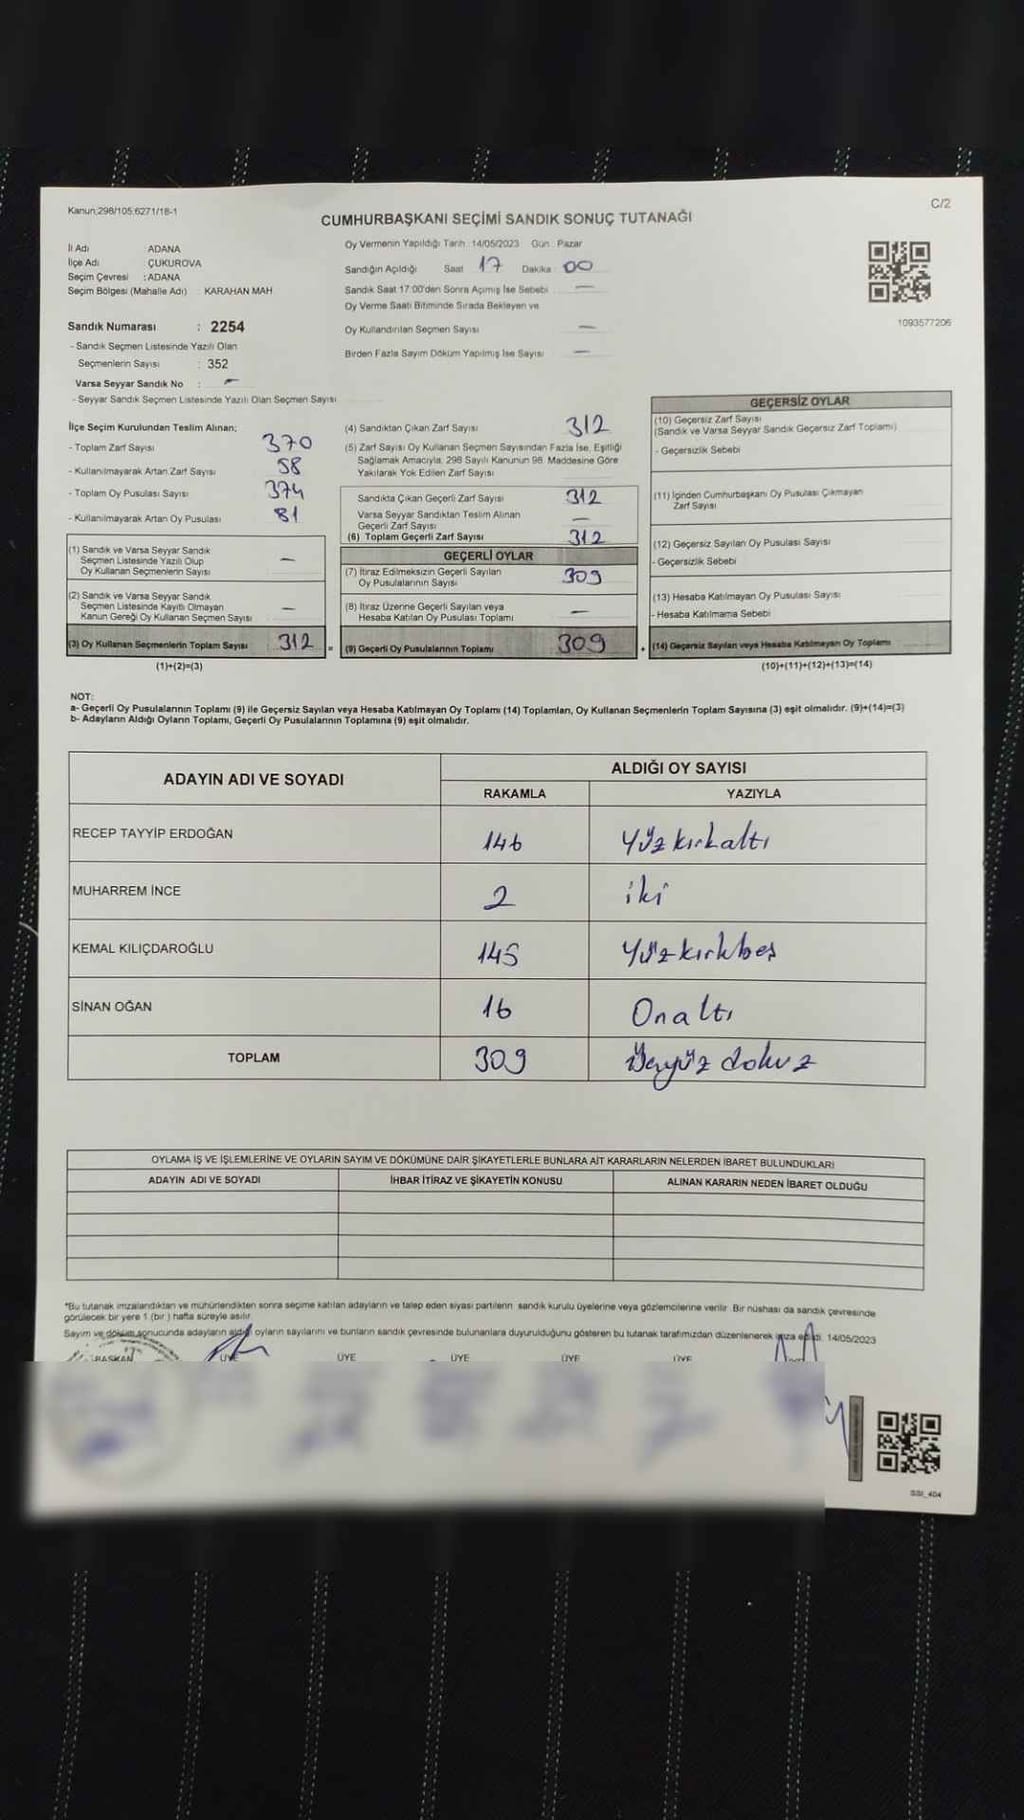 Kanun;298/105;6271/18-1
C/2
CUMHURBAŞKANI SEÇİMİ SANDIK SONUÇ TUTANAĞI
İl Adı ADANA
İlçe Adı ÇUKUROVA
Seçim Çevresi : ADANA
Seçim Bölgesi (Mahalle Adı) : KARAHAN MAH
Oy Vermenin Yapıldığı Tarih : 14/05/2023 Gün : Pazar
Sandığın Açıldığı Saat 17 Dakika 00
Sandık Saat 17:00'den Sonra Açımış İse Sebebi —
Oy Verme Saati Bitiminde Sırada Bekleyen ve
Oy Kullandırılan Seçmen Sayısı —
Birden Fazla Sayım Döküm Yapılmış İse Sayısı —
1093577206
Sandık Numarası : 2254
- Sandık Seçmen Listesinde Yazılı Olan
Seçmenlerin Sayısı : 352
Varsa Seyyar Sandık No : —
- Seyyar Sandık Seçmen Listesinde Yazılı Olan Seçmen Sayısı
İlçe Seçim Kurulundan Teslim Alınan;
- Toplam Zarf Sayısı 370
- Kullanılmayarak Artan Zarf Sayısı 58
- Toplam Oy Pusulası Sayısı 374
- Kullanılmayarak Artan Oy Pusulası 81
(1) Sandık ve Varsa Seyyar Sandık
Seçmen Listesinde Yazılı Olup
Oy Kullanan Seçmenlerin Sayısı —
(2) Sandık ve Varsa Seyyar Sandık
Seçmen Listesinde Kayıtlı Olmayan
Kanun Gereği Oy Kullanan Seçmen Sayısı —
(3) Oy Kullanan Seçmenlerin Toplam Sayısı 312 =
(1)+(2)=(3)
(4) Sandıktan Çıkan Zarf Sayısı 312
(5) Zarf Sayısı Oy Kullanan Seçmen Sayısından Fazla İse, Eşitliği
Sağlamak Amacıyla, 298 Sayılı Kanunun 98. Maddesine Göre
Yakılarak Yok Edilen Zarf Sayısı
Sandıkta Çıkan Geçerli Zarf Sayısı 312
Varsa Seyyar Sandıktan Teslim Alınan
Geçerli Zarf Sayısı —
(6) Toplam Geçerli Zarf Sayısı 312
GEÇERLİ OYLAR
(7) İtiraz Edilmeksizin Geçerli Sayılan
Oy Pusulalarının Sayısı 309
(8) İtiraz Üzerine Geçerli Sayılan veya
Hesaba Katılan Oy Pusulası Toplamı —
(9) Geçerli Oy Pusulalarının Toplamı 309 +
GEÇERSİZ OYLAR
(10) Geçersiz Zarf Sayısı
(Sandık ve Varsa Seyyar Sandık Geçersiz Zarf Toplamı)
- Geçersizlik Sebebi
(11) İçinden Cumhurbaşkanı Oy Pusulası Çıkmayan
Zarf Sayısı
(12) Geçersiz Sayılan Oy Pusulası Sayısı
- Geçersizlik Sebebi
(13) Hesaba Katılmayan Oy Pusulası Sayısı
- Hesaba Katılmama Sebebi
(14) Geçersiz Sayılan veya Hesaba Katılmayan Oy Toplamı
(10)+(11)+(12)+(13)=(14)
NOT:
a- Geçerli Oy Pusulalarının Toplamı (9) ile Geçersiz Sayılan veya Hesaba Katılmayan Oy Toplamı (14) Toplamları, Oy Kullanan Seçmenlerin Toplam Sayısına (3) eşit olmalıdır. (9)+(14)=(3)
b- Adayların Aldığı Oyların Toplamı, Geçerli Oy Pusulalarının Toplamına (9) eşit olmalıdır.
ADAYIN ADI VE SOYADI
ALDIĞI OY SAYISI
RAKAMLA YAZIYLA
RECEP TAYYİP ERDOĞAN 146 Yüzkırkaltı
MUHARREM İNCE 2 iki
KEMAL KILIÇDAROĞLU 145 Yüzkırkbeş
SİNAN OĞAN 16 Onaltı
TOPLAM 309 üçyüz dokuz
OYLAMA İŞ VE İŞLEMLERİNE VE OYLARIN SAYIM VE DÖKÜMÜNE DAİR ŞİKAYETLERLE BUNLARA AİT KARARLARIN NELERDEN İBARET BULUNDUKLARI
ADAYIN ADI VE SOYADI İHBAR İTİRAZ VE ŞİKAYETİN KONUSU ALINAN KARARIN NEDEN İBARET OLDUĞU
*Bu tutanak imzalandıktan ve mühürlendikten sonra seçime katılan adayların ve talep eden siyasi partilerin sandık kurulu üyelerine veya gözlemcilerine verilir. Bir nüshası da sandık çevresinde
görülecek bir yere 1 (bir) hafta süreyle asılır.
Sayım ve döküm sonucunda adayların aldığı oyların sayılarını ve bunların sandık çevresinde bulunanlara duyurulduğunu gösteren bu tutanak tarafımızdan düzenlenerek imza edildi. 14/05/2023
BAŞKAN ÜYE ÜYE ÜYE ÜYE ÜYE
SSI_404